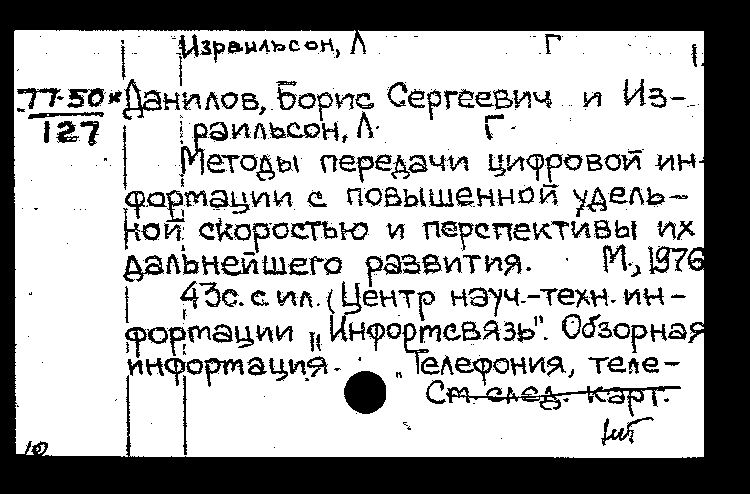 Израильсон, Л Г 1.
77-50* Данилов, Борис Сергеевич и Из-
127 раильсон, Л. Г.
Методы передачи цифровой ин-
формации с повышенной удель-
ной скоростью и перспективы их
дальнейшего развития. М., 1976
43с. с ил. (Центр науч.-техн. ин-
формации „Информсвязь". Обзорная
информация. „Телефония, теле-
См. след. карт.
10